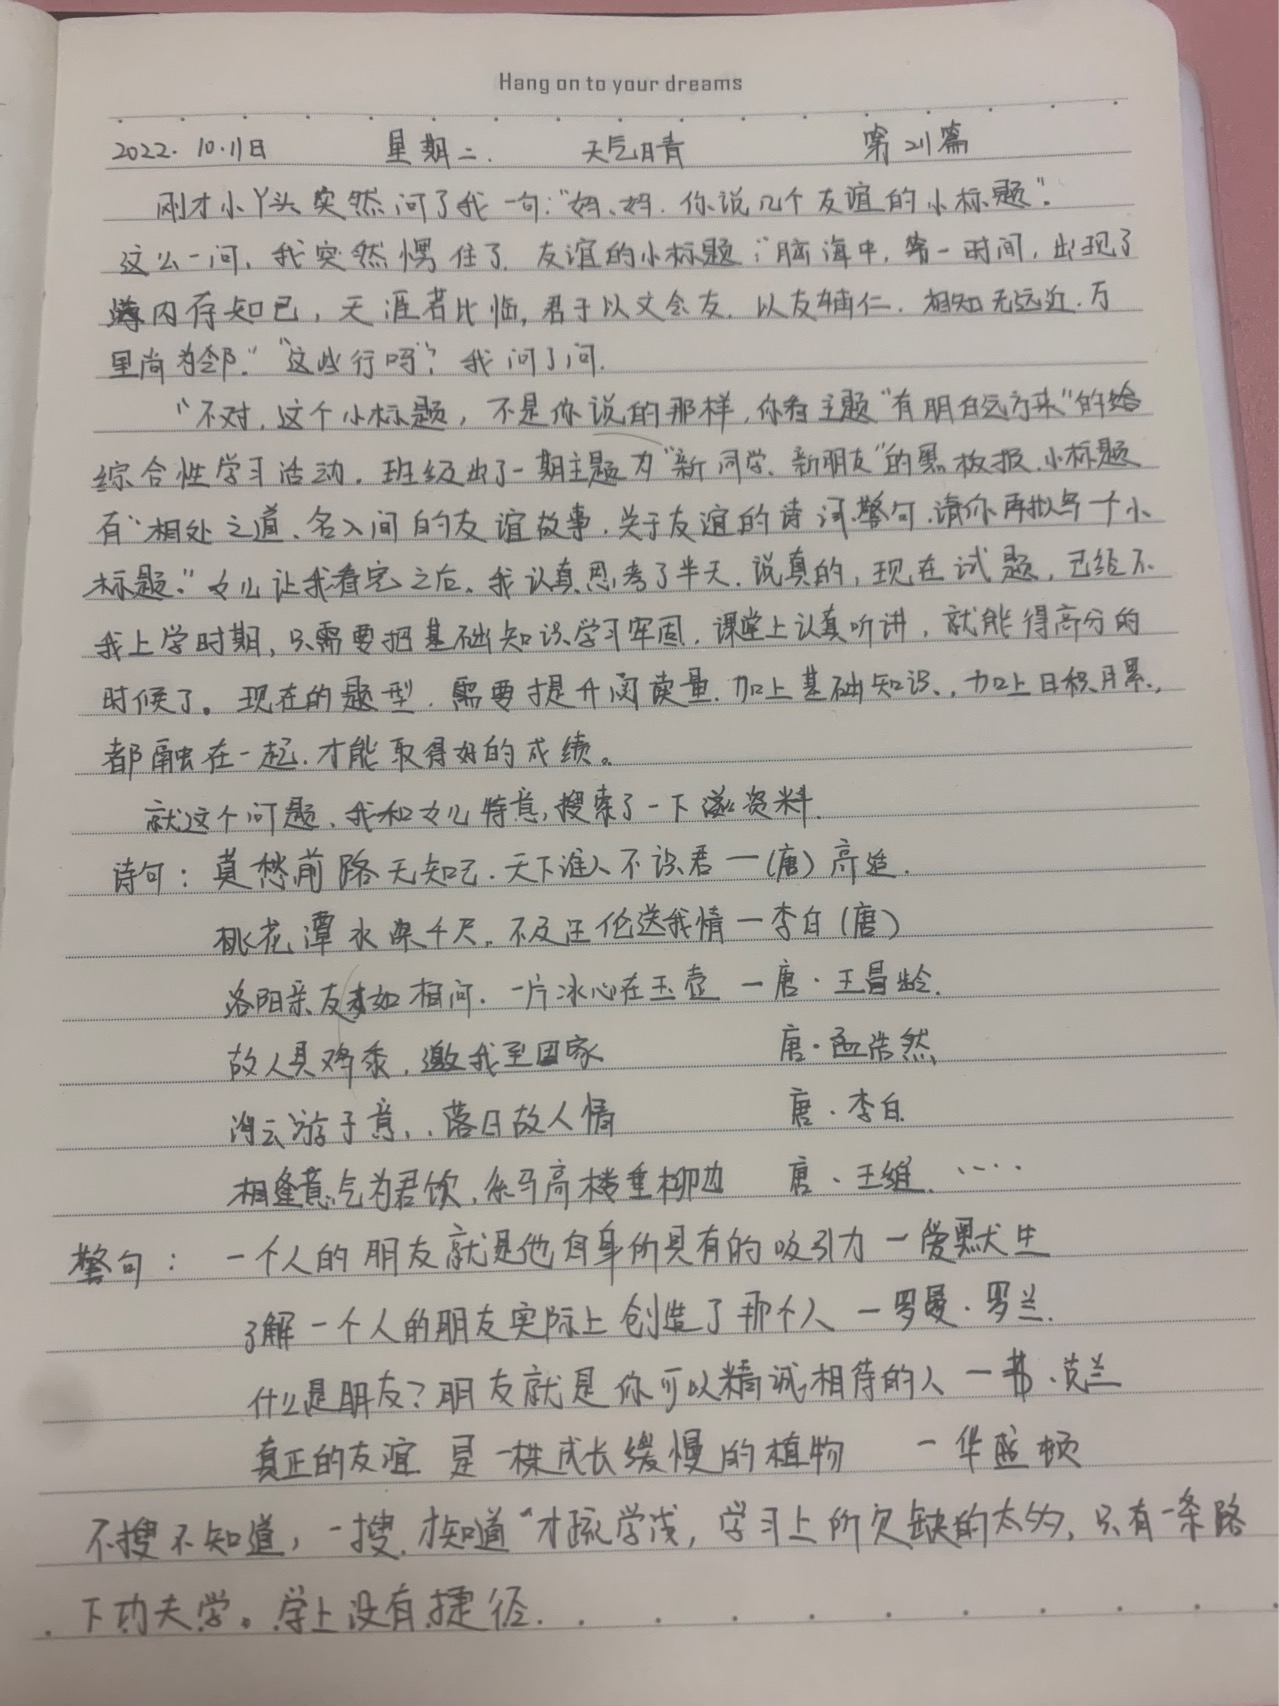 Hang on to your dreams
2022.10.11日 星期二. 天气晴 第211篇
刚才小丫头突然问了我一句:"妈、妈.你说几个友谊的小标题".
这么一问,我突然愣住了.友谊的小标题;"脑海中,第一时间,出现了
海内存知己,天涯若比临,君子以文会友.以友辅仁.相知无远近.万
里尚为邻.""这些行吗"?我问了问.
"不对,这个小标题,不是你说的那样,你看主题"有朋自远方来"的给
综合性学习活动.班级出了一期主题为"新同学、新朋友"的黑板报.小标题
有"相处之道、名人间的友谊故事.关于友谊的诗词、警句.请你再拟写一个小
标题."女儿让我看完之后.我认真思考了半天.说真的,现在试题,已经不
我上学时期,只需要把基础知识学习牢固.课堂上认真听讲,就能得高分的
时候了。现在的题型.需要提升阅读量.加上基础知识、,加上日积月累,
都融在一起.才能取得好的成绩。
就这个问题、我和女儿特意,搜索了一下资料.
诗句:莫愁前路无知己.天下谁人不识君一(唐)高适.
桃花潭水深千尺。不及汪伦送我情一李白(唐)
洛阳亲友如相问.一片冰心在玉壶 一唐·王昌龄.
故人具鸡黍,邀我至田家 唐·孟浩然
浮云游子意,.落日故人情 唐.李白
相逢意气为君饮,系马高楼垂柳边 唐.王维.....
警句:一个人的朋友就是他自身所具有的吸引力一爱默生
了解一个人的朋友实际上创造了那个人 一罗曼.罗兰.
什么是朋友?朋友就是你可以精诚相待的人 一弗.克兰
真正的友谊 是一株成长缓慢的植物 一华盛顿
不搜不知道,一搜.才知道"才疏学浅,学习上所欠缺的太多,只有一条路
下功夫学。学上没有捷径.